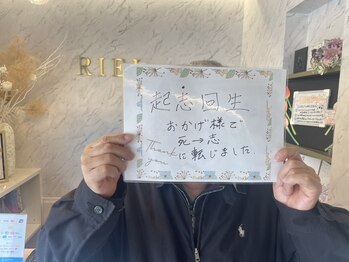 RIEL
起志回生
おかげ様で
死→志
に転じました
Thank
you